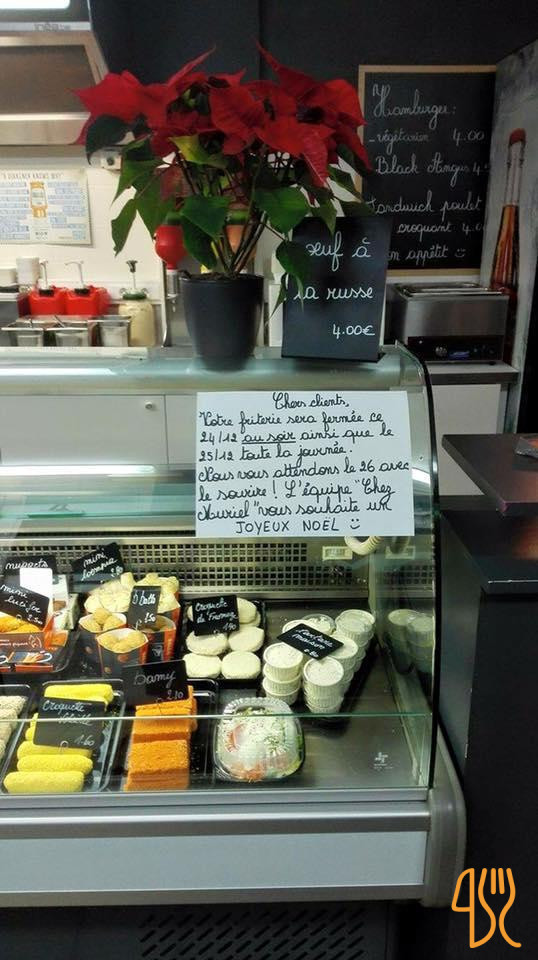 Hamburger:
- végétarien 4.00
Black Angus 4
Sandwich poulet
croquant 4.
on appétit :)
œuf à
la russe
4.00€
Chers clients,
Votre friterie sera fermée ce
24/12 au soir ainsi que le
25/12 toute la journée.
Nous vous attendons le 26 avec
le sourire ! L'équipe "Chez
Muriel" vous souhaite un
JOYEUX NOËL :)
nuggets
mini
loempia
mini
lucifer
Croquette
de Fromage
1.40
tartare
maison
Bamy
2.10
Croquette
1.60